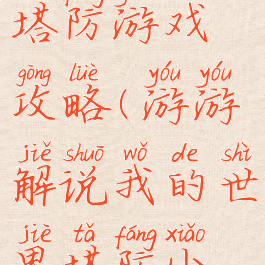 塔防游戏
gōng lüè yóu yóu
攻略(游游
jiě shuō wǒ de shì
解说我的世
jiè tǎ fáng xiǎo
界塔防小